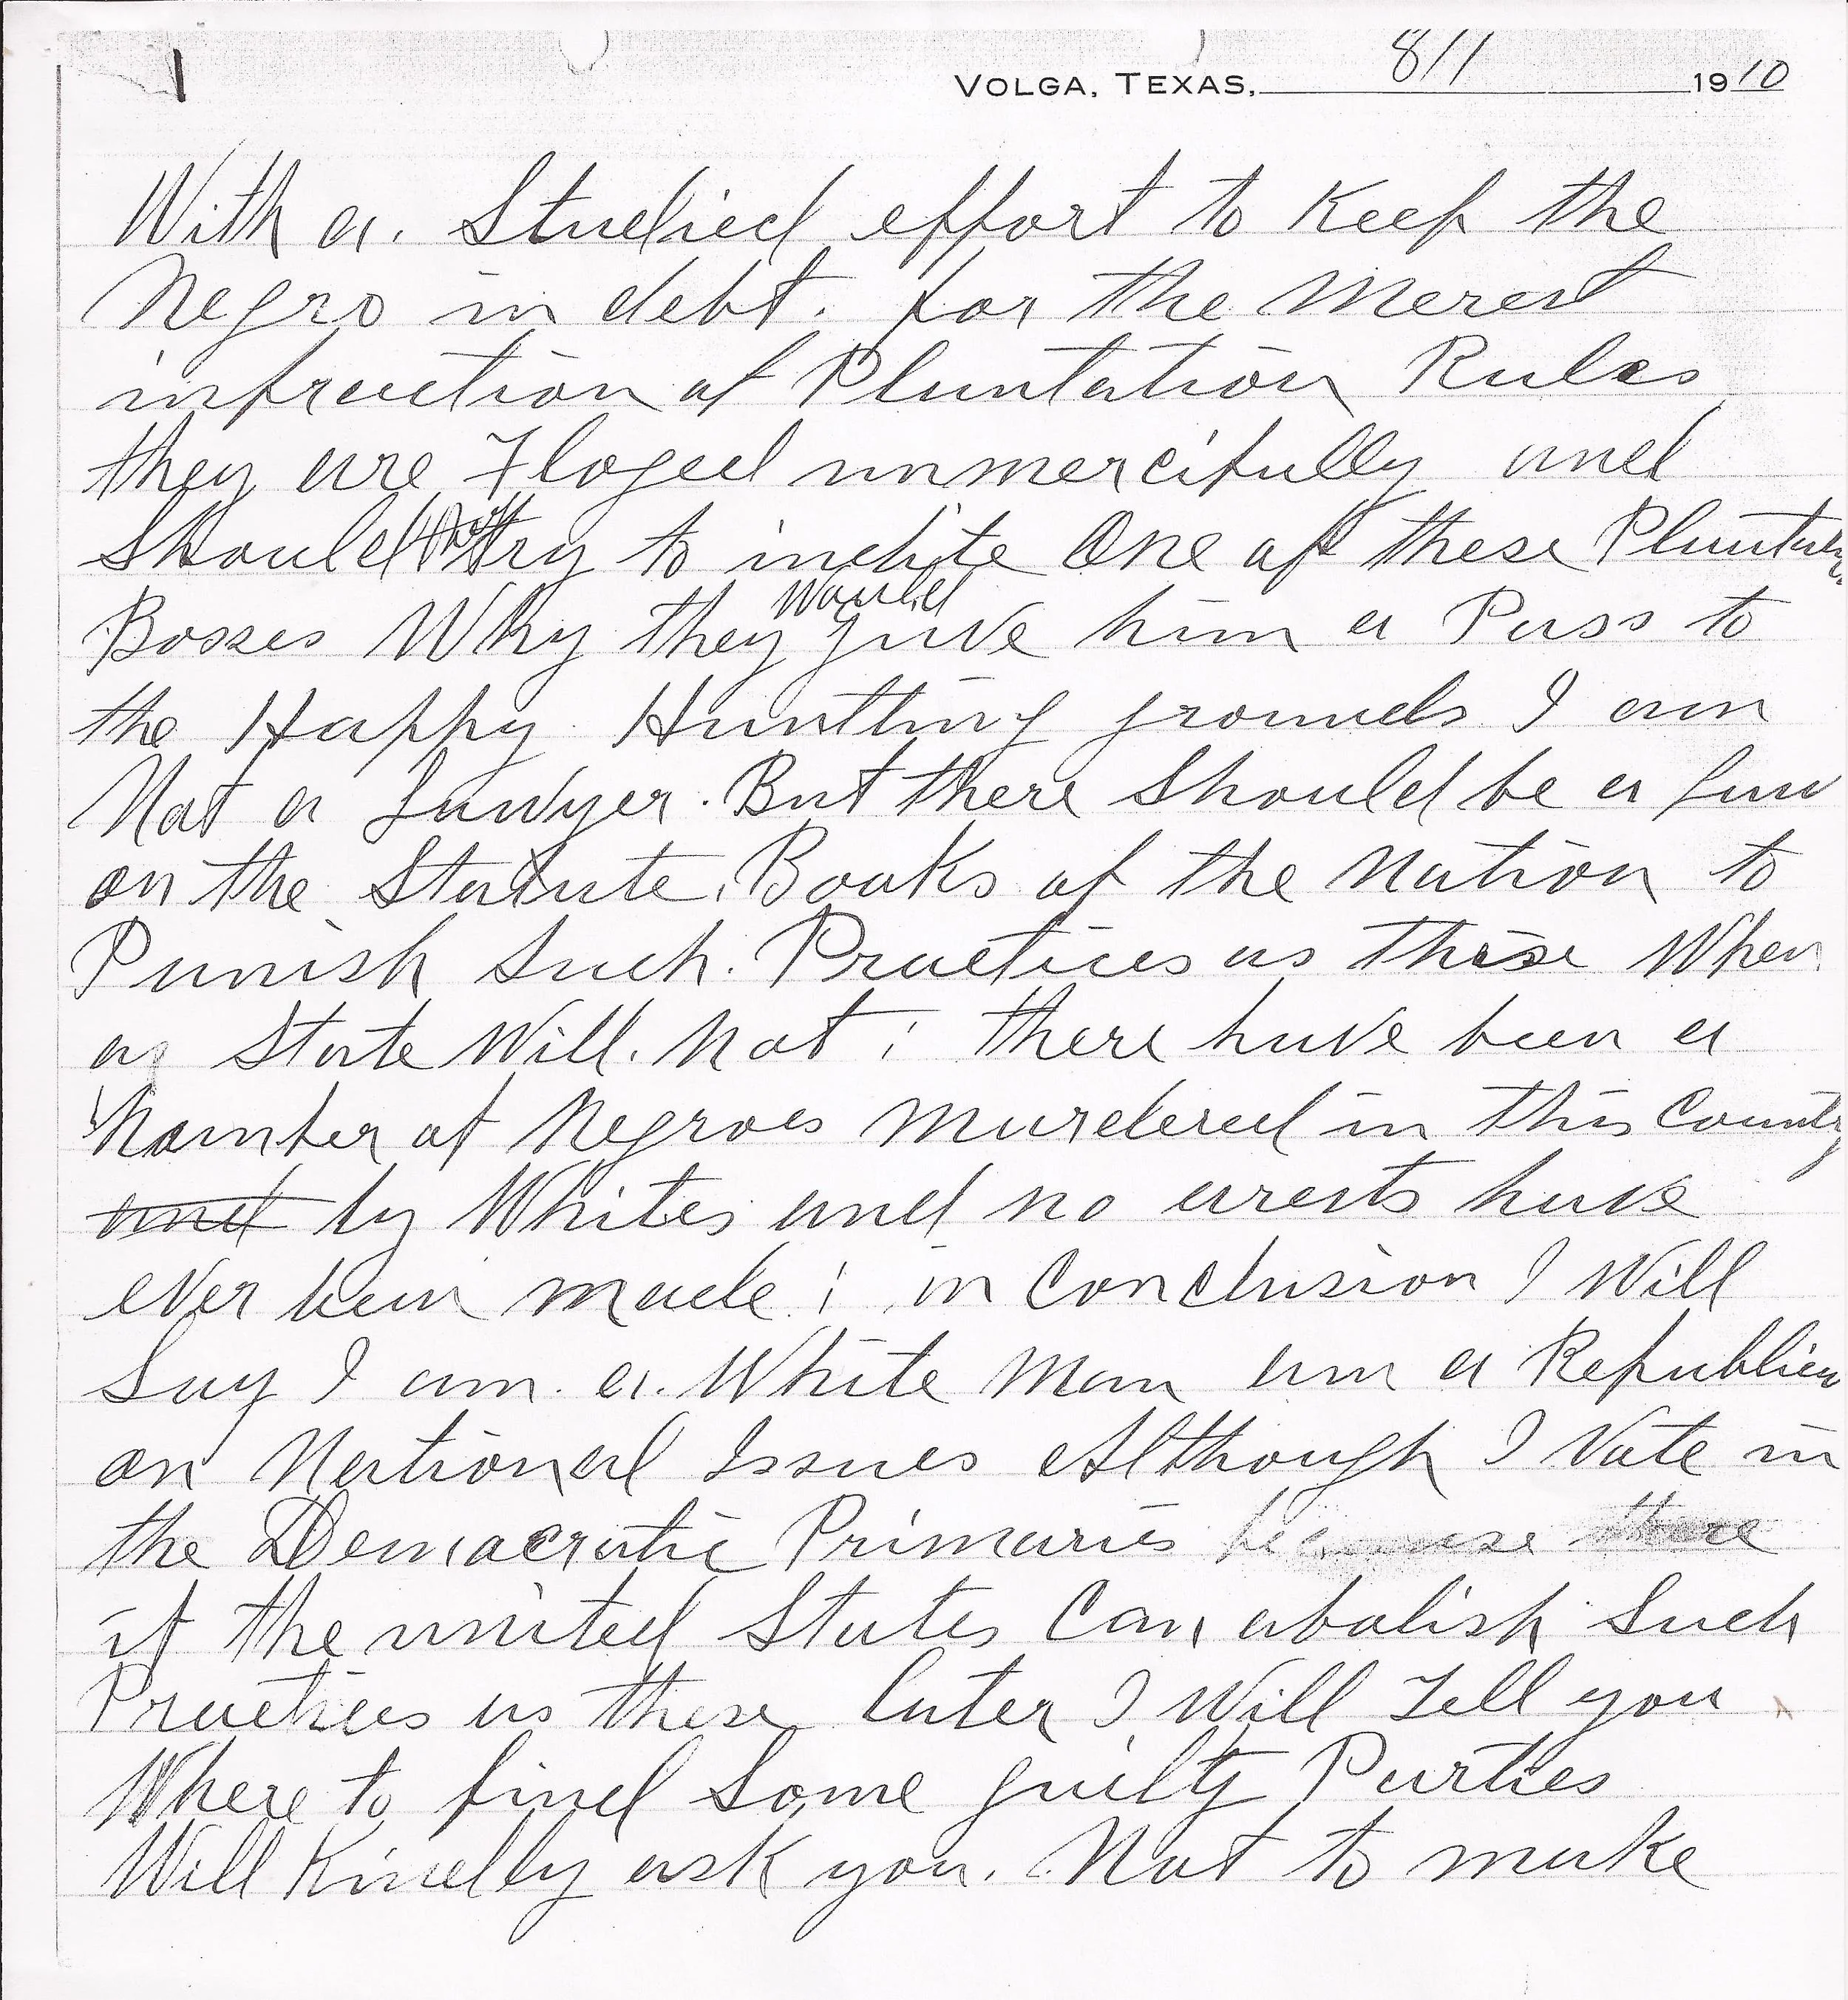 VOLGA, TEXAS, 8/1 1910
With a. Studied effort to Keep the
Negro in debt. for the merest
infraction of Plantation Rules
they are Floged unmercifully and
Should try to indite One of these
Bosses Why they would give him a Pass to
the Happy Huntting grounds I am
Not a Lawyer. But there Should be a Law
on the Statute. Books of the Nation to
Punish Such. Practices as these When
a State Will. Not ; there have been a
Number of Negroes murdered in this County
and by Whites and no arests have
ever been made ; in Conclusion I Will
Say I am. a. White man am a Republican
on National Issues Although I Vote in
the Democratic Primaries because there
if the united States Can abolish Such
Practices as these later I Will Tell you
Where to find Some guilty Parties
Will Kindly ask you. Not to make